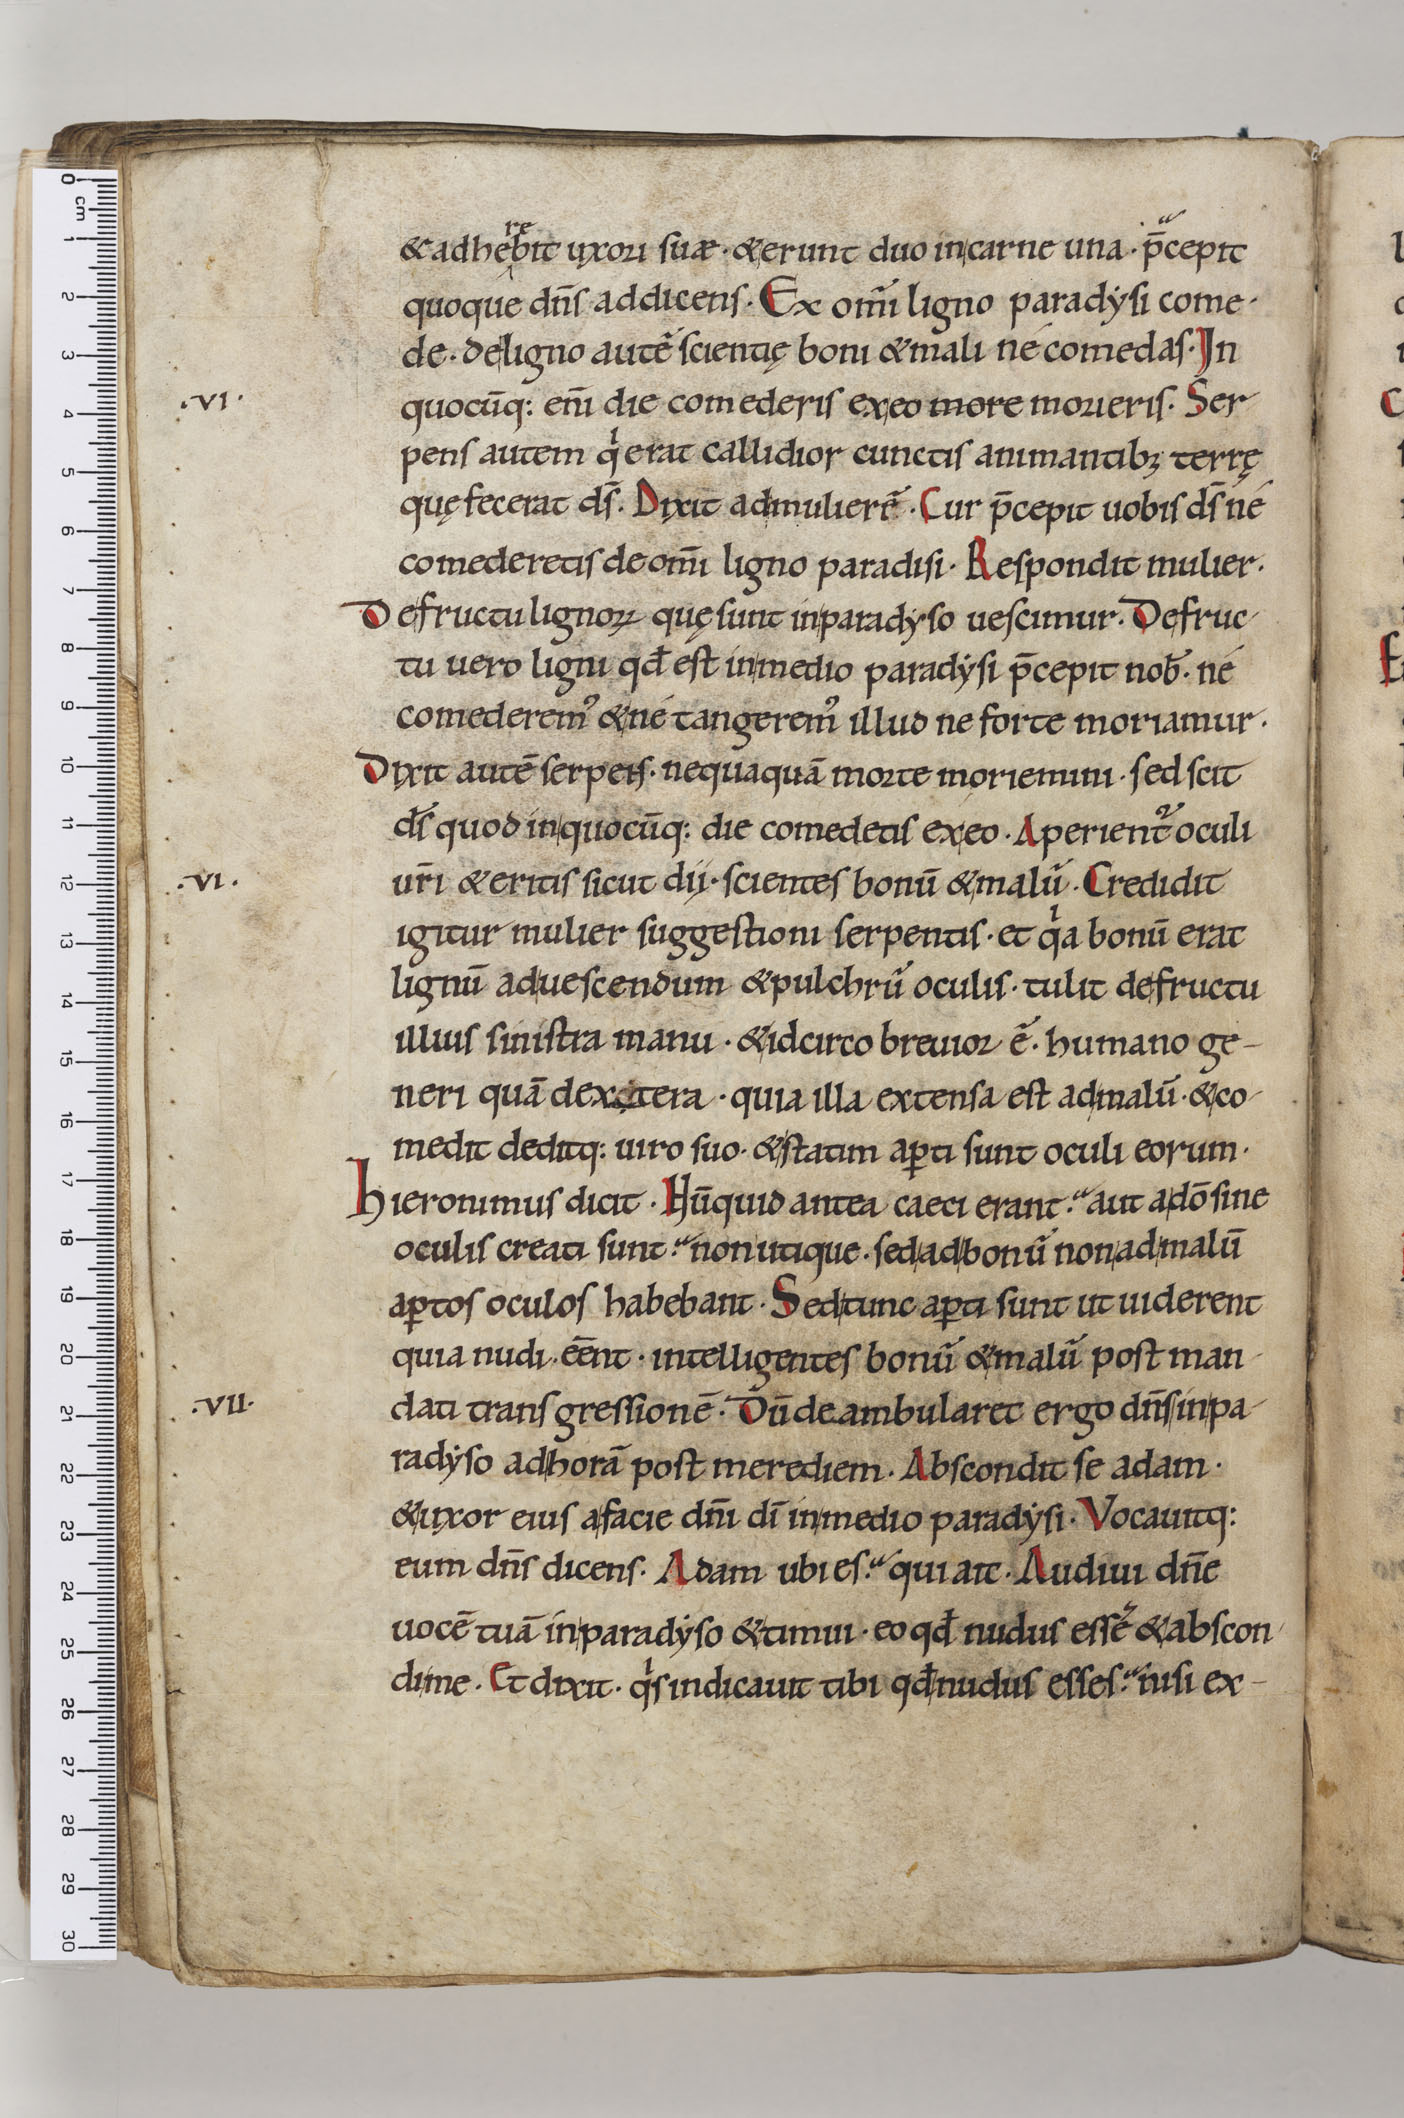 &adhe\re/bit uxori suæ · &erunt duo incarne una · p̄cepit
quoque dn̄s addicens · Ex om̄i ligno paradẏsi come-
de · deligno autē scientię boni &mali né comedas · In
.vi. quocūq: eni̅ die comederis exeo more morieris · Ser-
pens autem qͥ erat callidior cunctis animantibꝫ terrę
quę fecerat ds̄ · Dixit admulierē · Cur p̄cepit uobis ds̄ né
comederetis deom̄i ligno paradisi · Respondit mulier ·
Defructu lignoꝝ quę sunt inparadẏso uescimur · Defruc-
tu uero ligni qđ est inmedio paradẏsi p̄cepit nob̄ · né
comederemꝰ &né tangeremꝰ illud ne forte moriamur ·
Dixit autē serpens · nequaquā morte moriemini · sed scit
ds̄ quod inquocūq: die comedetis exeo · Aperient᷑ oculi
.vi. ur̄i &eritis sicut dij · scientes bonū &malū · Credidit
igitur mulier suggestioni serpentis · et qͥa bonū erat
lignū aduescendum &pulchrū oculis · tulit defructu
illius sinistra manu · &idcirco breuior ē · humano ge-
neri quā dextera · quia illa extensa est admalū · &co-
medit deditq: uiro suo · &statim aꝑti sunt oculi eorum ·
hieronimus dicit · Nūquid antea caeci erant? aut adō sine
oculis creati sunt? non utique · sed adbonū non admalū
aꝑtos oculos habebant · Sed tunc aꝑti sunt ut uiderent
quia nudi · eēnt · intelligentes bonū &malū post man-
.vii. dati transgressionē · Dū deambularet ergo dn̄s inpa-
radẏso adhorā post merediem · Abscondit se adam ·
&uxor eius afacie dn̄i dī inmedio paradẏsi · Vocauitq:
eum dn̄s dicens · Adam ubi es? qui ait · Audiui dn̄e
uocē tuā inparadẏso &timui · eo qđ nudus essē &abscon-
di me · Et dixit · qͥs indicauit tibi qđ nudus esses? nisi ex-
0
cm
1
2
3
4
5
6
7
8
9
10
11
12
13
14
15
16
17
18
19
20
21
22
23
24
25
26
27
28
29
30